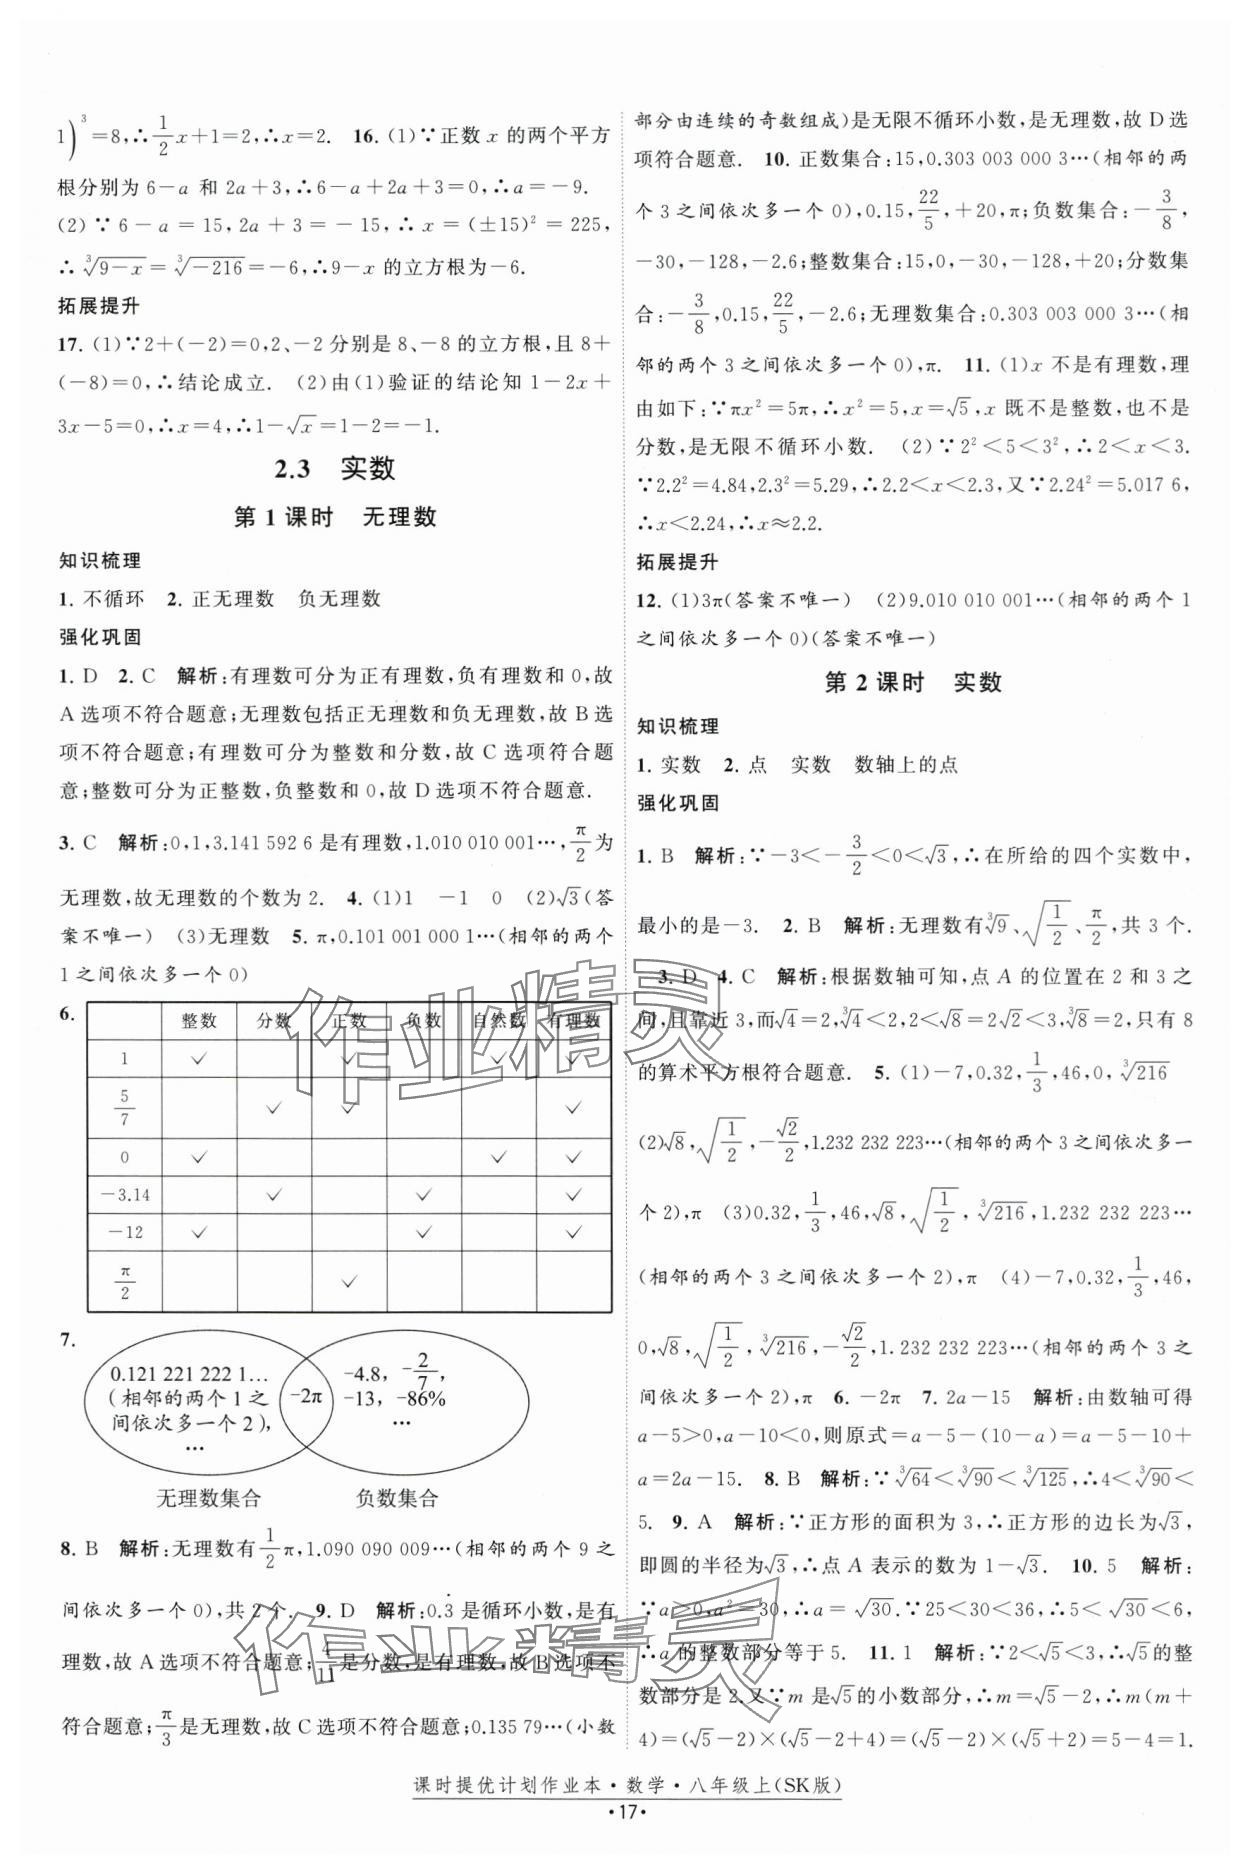 1)³=8,∴1/2x+1=2,∴x=2. 16. (1)∵正数 x 的两个平方
根分别为 6-a 和 2a+3,∴6-a+2a+3=0,∴a=-9.
(2)∵6-a=15,2a+3=-15,∴x=(±15)²=225,
∴∛(9-x)=∛(-216)=-6,∴9-x 的立方根为-6.
拓展提升
17. (1)∵2+(-2)=0,2、-2 分别是 8、-8 的立方根,且 8+
(-8)=0,∴结论成立. (2)由(1)验证的结论知 1-2x+
3x-5=0,∴x=4,∴1-√x=1-2=-1.
2.3 实数
第 1 课时 无理数
知识梳理
1. 不循环 2. 正无理数 负无理数
强化巩固
1. D 2. C 解析:有理数可分为正有理数,负有理数和 0,故
A 选项不符合题意;无理数包括正无理数和负无理数,故 B 选
项不符合题意;有理数可分为整数和分数,故 C 选项符合题
意;整数可分为正整数,负整数和 0,故 D 选项不符合题意.
3. C 解析:0,1,3.141 592 6 是有理数,1.010 010 001…,π/2为
无理数,故无理数的个数为 2. 4. (1)1 -1 0 (2)√3(答
案不唯一) (3)无理数 5. π,0.101 001 000 1…(相邻的两个
1 之间依次多一个 0)
6.
整数 分数 正数 负数 自然数 有理数
1 ✓ ✓ ✓ ✓
5/7 ✓ ✓ ✓
0 ✓ ✓ ✓
-3.14 ✓ ✓ ✓
-12 ✓ ✓ ✓
π/2 ✓
7.
0.121 221 222 1…
(相邻的两个 1 之
间依次多一个 2),
…
-2π
-4.8, -2/7,
-13, -86%
…
无理数集合 负数集合
8. B 解析:无理数有1/2π,1.090 090 009…(相邻的两个 9 之
间依次多一个 0),共 2 个. 9. D 解析:0.3̇ 是循环小数,是有
理数,故 A 选项不符合题意;4/11是分数,是有理数,故 B 选项不
符合题意;π/3是无理数,故 C 选项不符合题意;0.135 79…(小数
部分由连续的奇数组成)是无限不循环小数,是无理数,故 D 选
项符合题意. 10. 正数集合:15,0.303 003 000 3…(相邻的两
个 3 之间依次多一个 0),0.15,22/5,+20,π;负数集合:-3/8,
-30,-128,-2.6;整数集合:15,0,-30,-128,+20;分数集
合:-3/8,0.15,22/5,-2.6;无理数集合:0.303 003 000 3…(相
邻的两个 3 之间依次多一个 0),π. 11. (1)x 不是有理数,理
由如下:∵πx²=5π,∴x²=5,x=√5,x 既不是整数,也不是
分数,是无限不循环小数. (2)∵2²<5<3²,∴2<x<3.
∵2.2²=4.84,2.3²=5.29,∴2.2<x<2.3,又∵2.24²=5.017 6,
∴x<2.24,∴x≈2.2.
拓展提升
12. (1)3π(答案不唯一) (2)9.010 010 001…(相邻的两个 1
之间依次多一个 0)(答案不唯一)
第 2 课时 实数
知识梳理
1. 实数 2. 点 实数 数轴上的点
强化巩固
1. B 解析:∵-3<-3/2<0<√3,∴在所给的四个实数中,
最小的是-3. 2. B 解析:无理数有∛9、√(1/2)、π/2,共 3 个.
3. D 4. C 解析:根据数轴可知,点 A 的位置在 2 和 3 之
间,且靠近 3,而√4=2,∛4<2,2<√8=2√2<3,∛8=2,只有 8
的算术平方根符合题意. 5. (1)-7,0.32,1/3,46,0,∛216
(2)√8,√(1/2),-√2/2,1.232 232 223…(相邻的两个 3 之间依次多一
个 2),π (3)0.32,1/3,46,√8,√(1/2),∛216,1.232 232 223…
(相邻的两个 3 之间依次多一个 2),π (4)-7,0.32,1/3,46,
0,√8,√(1/2),∛216,-√2/2,1.232 232 223…(相邻的两个 3 之
间依次多一个 2),π 6. -2π 7. 2a-15 解析:由数轴可得
a-5>0,a-10<0,则原式=a-5-(10-a)=a-5-10+
a=2a-15. 8. B 解析:∵∛64<∛90<∛125,∴4<∛90<
5. 9. A 解析:∵正方形的面积为 3,∴正方形的边长为√3,
即圆的半径为√3,∴点 A 表示的数为 1-√3. 10. 5 解析:
∵a>0,a²=30,∴a=√30.∵25<30<36,∴5<√30<6,
∴a 的整数部分等于 5. 11. 1 解析:∵2<√5<3,∴√5的整
数部分是 2.又∵m 是√5的小数部分,∴m=√5-2,∴m(m+
4)=(√5-2)×(√5-2+4)=(√5-2)×(√5+2)=5-4=1.
作业精灵
作业精灵
课时提优计划作业本·数学·八年级上(SK版)
·17·